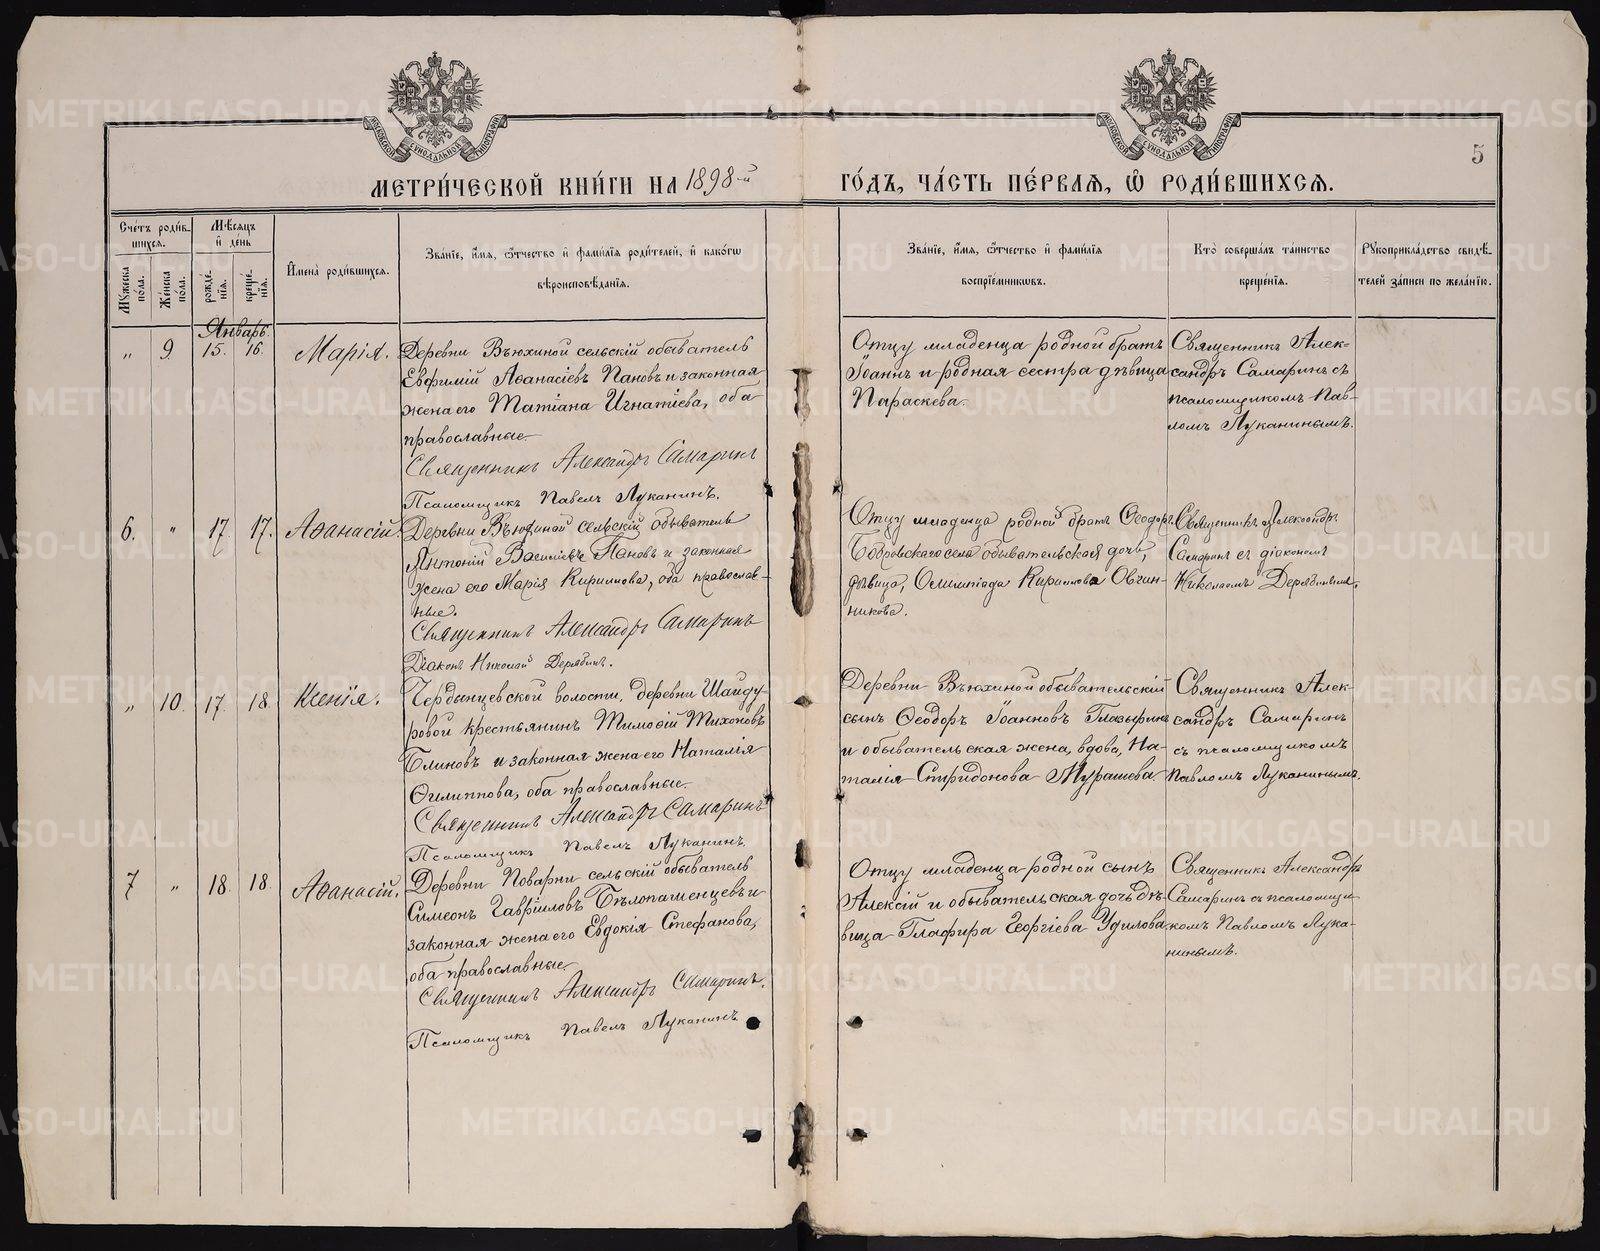 МОСКОВСКОЙ СѴНОДАЛЬНОЙ ТИПОГРАФІИ
МОСКОВСКОЙ СѴНОДАЛЬНОЙ ТИПОГРАФІИ
5
МЕТРИ́ЧЕСКОЙ КНИ́ГИ НА 1898-й
ГО́ДЪ, ЧА́СТЬ ПЕ́РВАЯ, Ѡ РОДИ́ВШИХСЯ.
Сче́тъ роди́в-
шихся.
Мѣ́сяцъ
и҆ де́нь
Мꙋ́жеска по́ла.
Же́нска по́ла.
рожде́нїя.
креще́нїя.
И҆мена̀ роди́вшихся.
Зва́нїе, и҆́мя, ѻ҆́тчество и҆ фами́лїя роди́телей, и҆ како́гѡ
вѣроисповѣ́данїя.
Зва́нїе, и҆́мя, ѻ҆́тчество и҆ фами́лїя
воспрїе́мникѡвъ.
Кто̀ соверша́лъ та́инство
креще́нїя.
Рꙋкоприкла́дство свидѣ́-
телей за́писи по жела́нїю.
Январь.
„ 9. 15. 16. Марія.
Деревни Вьюхиной сельскій обыватель
Евфимій Аѳанасіевъ Пановъ и законная
жена его Татіана Игнатіева, оба
православные.
Священникъ Александръ Самаринъ
Псаломщикъ Павелъ Луканинъ.
Отцу младенца родной братъ
Іоаннъ и родная сестра дѣвица
Параскева.
Священникъ Алек-
сандръ Самаринъ съ
псаломщикомъ Пав-
ломъ Луканинымъ.
6. „ 17. 17. Аѳанасій.
Деревни Вьюхиной сельскій обыватель
Антоній Василіевъ Пановъ и законная
жена его Марія Кириллова, оба православ-
ные.
Священникъ Александръ Самаринъ
Діаконъ Николай Дерябинъ.
Отцу младенца родной братъ Ѳеодоръ,
Бобровскаго села обывательская дочь,
дѣвица, Олимпіада Кириллова Овчин-
никова.
Священникъ Александръ
Самаринъ съ діакономъ
Николаемъ Дерябинымъ.
„ 10. 17. 18. Ксенія.
Чердынцевской волости, деревни Шайду-
ровой крестьянинъ Тимоѳій Тихоновъ
Блиновъ и законная жена его Наталія
Филиппова, оба православные.
Священникъ Александръ Самаринъ
Псаломщикъ Павелъ Луканинъ.
Деревни Вьюхиной обывательскій
сынъ Ѳеодоръ Іоанновъ Глазыринъ
и обывательская жена, вдова, На-
талія Спиридонова Мурашева
Священникъ Алек-
сандръ Самаринъ
съ псаломщикомъ
Павломъ Луканинымъ.
7 „ 18. 18. Аѳанасій.
Деревни Поварни сельскій обыватель
Симеонъ Гавріиловъ Бѣлопашенцевъ и
законная жена его Евдокія Стефанова,
оба православные.
Священникъ Александръ Самаринъ.
Псаломщикъ Павелъ Луканинъ.
Отцу младенца родной сынъ
Алексій и обывательская дочь дѣ-
вица Глафира Георгіева Удилова.
Священникъ Александръ
Самаринъ съ псаломщи-
комъ Павломъ Лука-
нинымъ.
METRIKI.GASO-URAL.RU